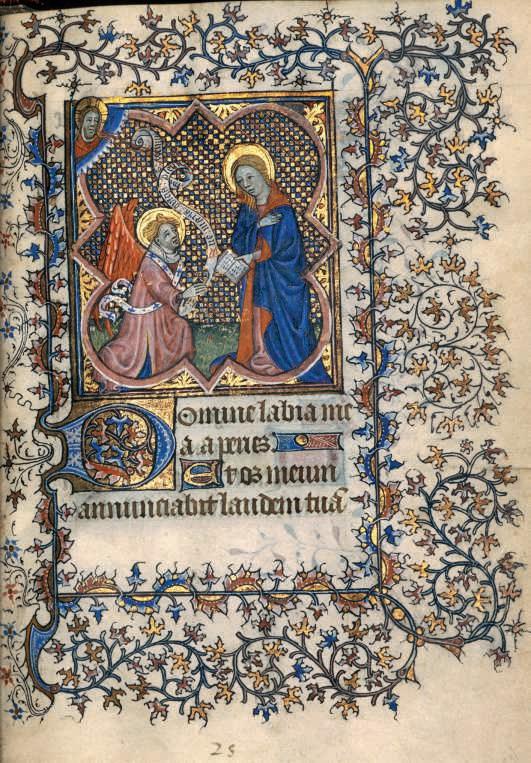 Domine labia me
a aperies
Et os meum
annunciabit laudem tuã
25